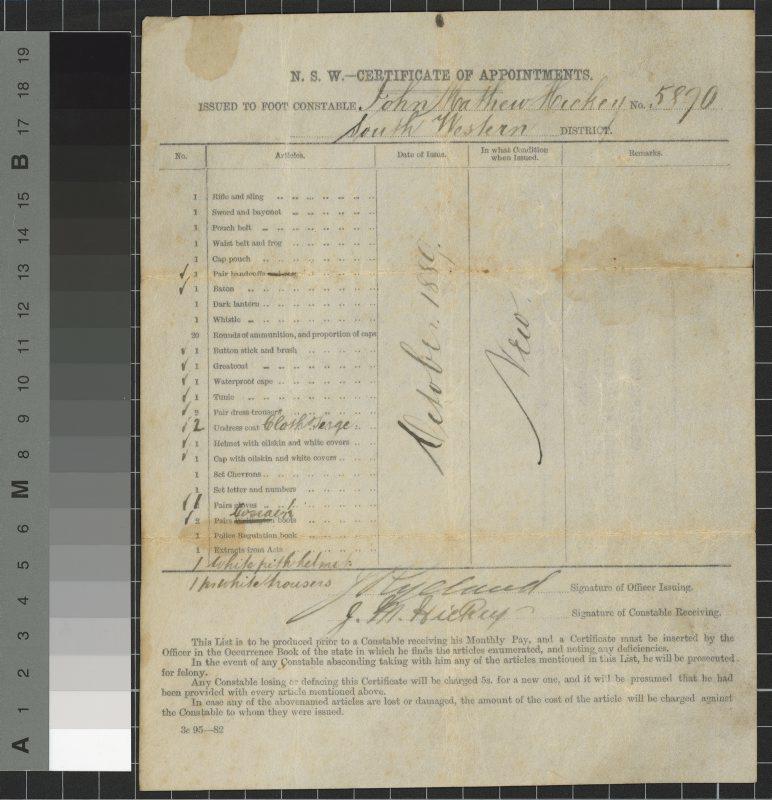 N. S. W.—CERTIFICATE OF APPOINTMENTS.
ISSUED TO FOOT CONSTABLE John Mathew Hickey No. 5890
South Western DISTRICT.
No. Articles. Date of Issue. In what Condition when Issued. Remarks.
October 1889.
New.
1 Rifle and sling
1 Sword and bayonet
1 Pouch belt
1 Waist belt and frog
1 Cap pouch
1 Pair handcuffs
1 Baton
1 Dark lantern
1 Whistle
20 Rounds of ammunition, and proportion of caps
1 Button stick and brush
1 Greatcoat
1 Waterproof cape
1 Tunic
2 Pair dress trousers
2 Undress coat Cloth & Serge
1 Helmet with oilskin and white covers
1 Cap with oilskin and white covers
1 Set Chevrons
1 Set letter and numbers
1 Pairs gloves
2 Pairs boots
1 Police Regulation book
1 Extracts from Acts
1 White pith helmet
1 pr white trousers
Signature of Officer Issuing.
J. M. Hickey Signature of Constable Receiving.
This List is to be produced prior to a Constable receiving his Monthly Pay, and a Certificate must be inserted by the
Officer in the Occurrence Book of the state in which he finds the articles enumerated, and noting any deficiencies.
In the event of any Constable absconding taking with him any of the articles mentioned in this List, he will be prosecuted
for felony.
Any Constable losing or defacing this Certificate will be charged 5s. for a new one, and it will be presumed that he had
been provided with every article mentioned above.
In case any of the abovenamed articles are lost or damaged, the amount of the cost of the article will be charged against
the Constable to whom they were issued.
3c 95—82
A 1 2 3 4 5 6 M 8 9 10 11 12 13 14 15 B 17 18 19